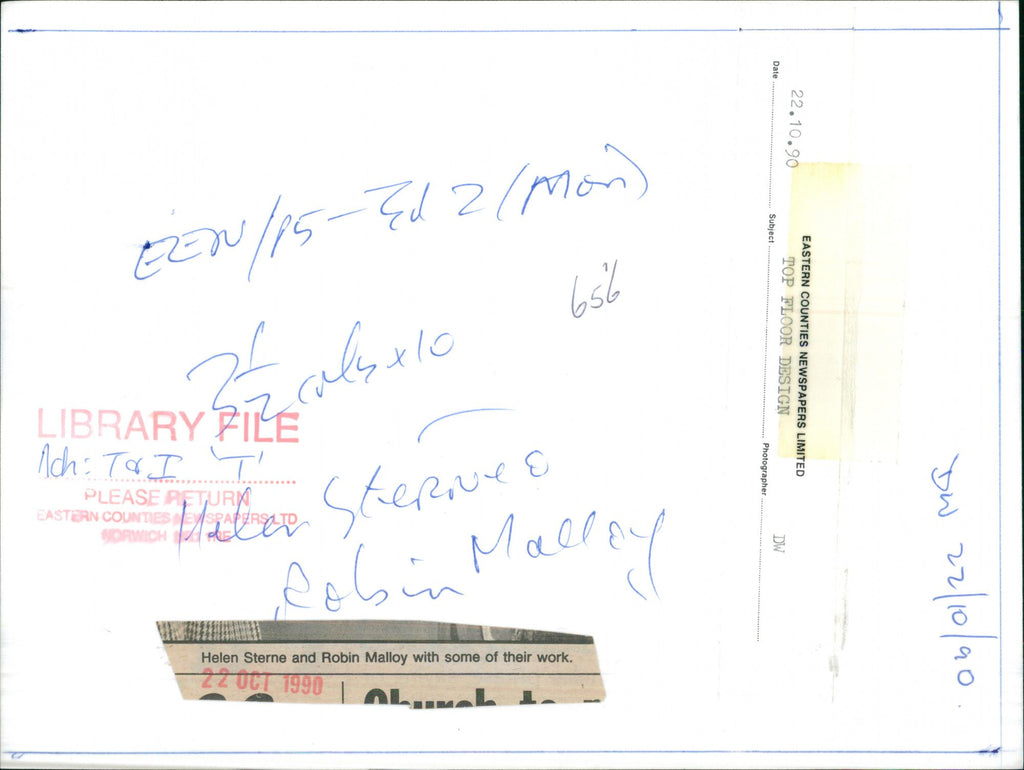 EEN/P5 - Ed 2 (Mon)
65%
3½ cols x 10
LIBRARY FILE
T & I 'T'
PLEASE RETURN
EASTERN COUNTIES NEWSPAPERS LTD
NORWICH
Helen Sterne &
Robin Malloy
Helen Sterne and Robin Malloy with some of their work.
22 OCT 1990
Church to
EASTERN COUNTIES NEWSPAPERS LIMITED
Date 22.10.90 Subject TOP FLOOR DESIGN Photographer DW
DW 22/10/90